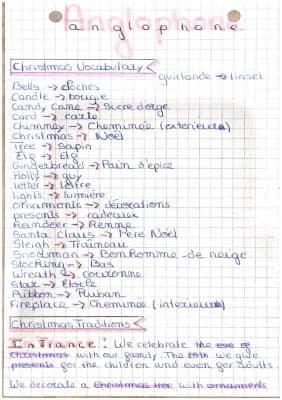 Anglophone
anglophone
Christmas Vocabulary
guirlande → tinsel
Bells → cloches
Candle → bougie
Candy Cane → Sucre d'orge
Card → carte
Chimney → Cheminée (extérieure)
Christmas → Noël
Tree → Sapin
Elf → Elf
Gingerbread → Pain d'épice
Holly → guy
letter → lettre
lights → lumière
ornaments → décorations
presents → cadeaux
Reindeer → Renne
Santa Claus → Père Noël
Sleigh → Traineau
Snowman → Bonhomme de neige
Stocking → Bas
Wreath → couronne
Star → Etoile
Ribbon → Ruban
Fireplace → Cheminée (interieure)
Christmas Traditions
In France: We celebrate the eve of
Christmas with our family. The we give
presents for the children and even for adults.
We decorate a Christmas tree with ornaments